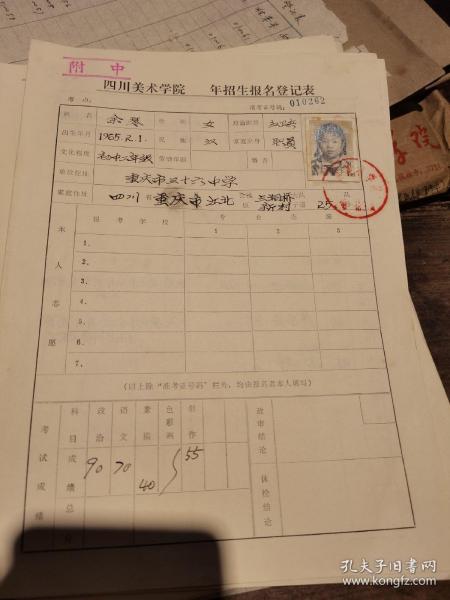 附中
四川美术学院 年招生报名登记表
考点: 准考证号码: 010262
姓名 余琴 性别 女 政治面貌
出生年月 1965.2.1. 民族 汉 家庭出身 职员
文化程度 初中二年级 劳动年限
单位或住 重庆市三十六中学
家庭住址 四川省重庆市江北 新村 25
报考学校 专业志愿
1 2 3
本人志愿
1.
2.
3.
4.
5.
6.
7.
(以上除“准考证号码”栏外,均由报名者本人填写)
考试成绩
科目 政治 语文 素描 色彩画 创作
成绩 90 70 40 55
总分
政审结论
体检结论
孔夫子旧书网
www.kongfz.com